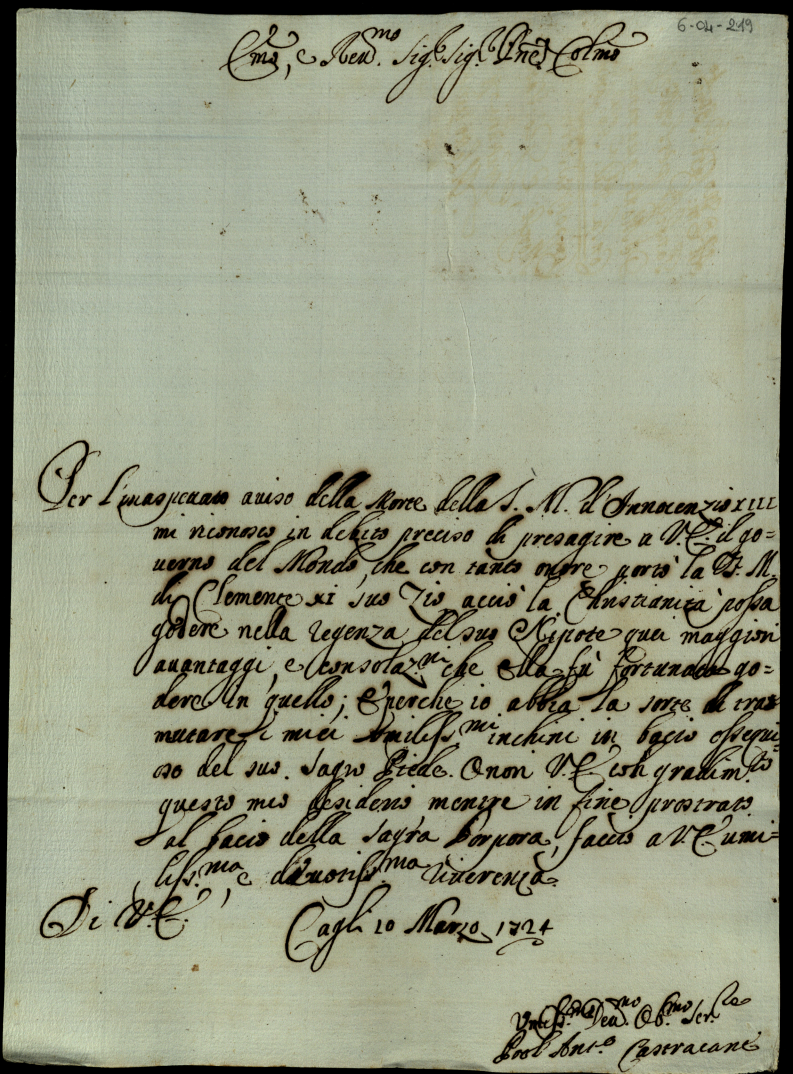 6-04-219
Em̃o, e Reu.mo Sig.r Sig.r Pñe Colmo
Per l'inaspettato auiso della Morte della S. M. d'Innocenzio XIII
mi riconosco in debito preciso di presagire a V.E. il go=
uerno del Mondo, che con tanto onore portò la S. M.
di Clemente XI suo Zio, acciò la Christianità possa
godere nella regenza del suo Nipote quei maggiori
auantaggi, e consolaz.ni che ella fù fortunata go=
dere in quello; e perche io abbia la sorte di tras
mutare i miei vmiliss.mi inchini in bacio ossequi=
oso del suo Sagro Piede. Onori V.E. con gradim.to
questo mio desiderio mentre in fine prostrato
al bacio della Sagra Porpora, faccio a V.E. umi=
liss.ma, e diuotiss.ma riuerenza.
Di V.E. Cagli 10 Marzo 1724
Vmiliss.mo Deu.mo Ob.mo Ser.re
Paol Ant.o Castracane